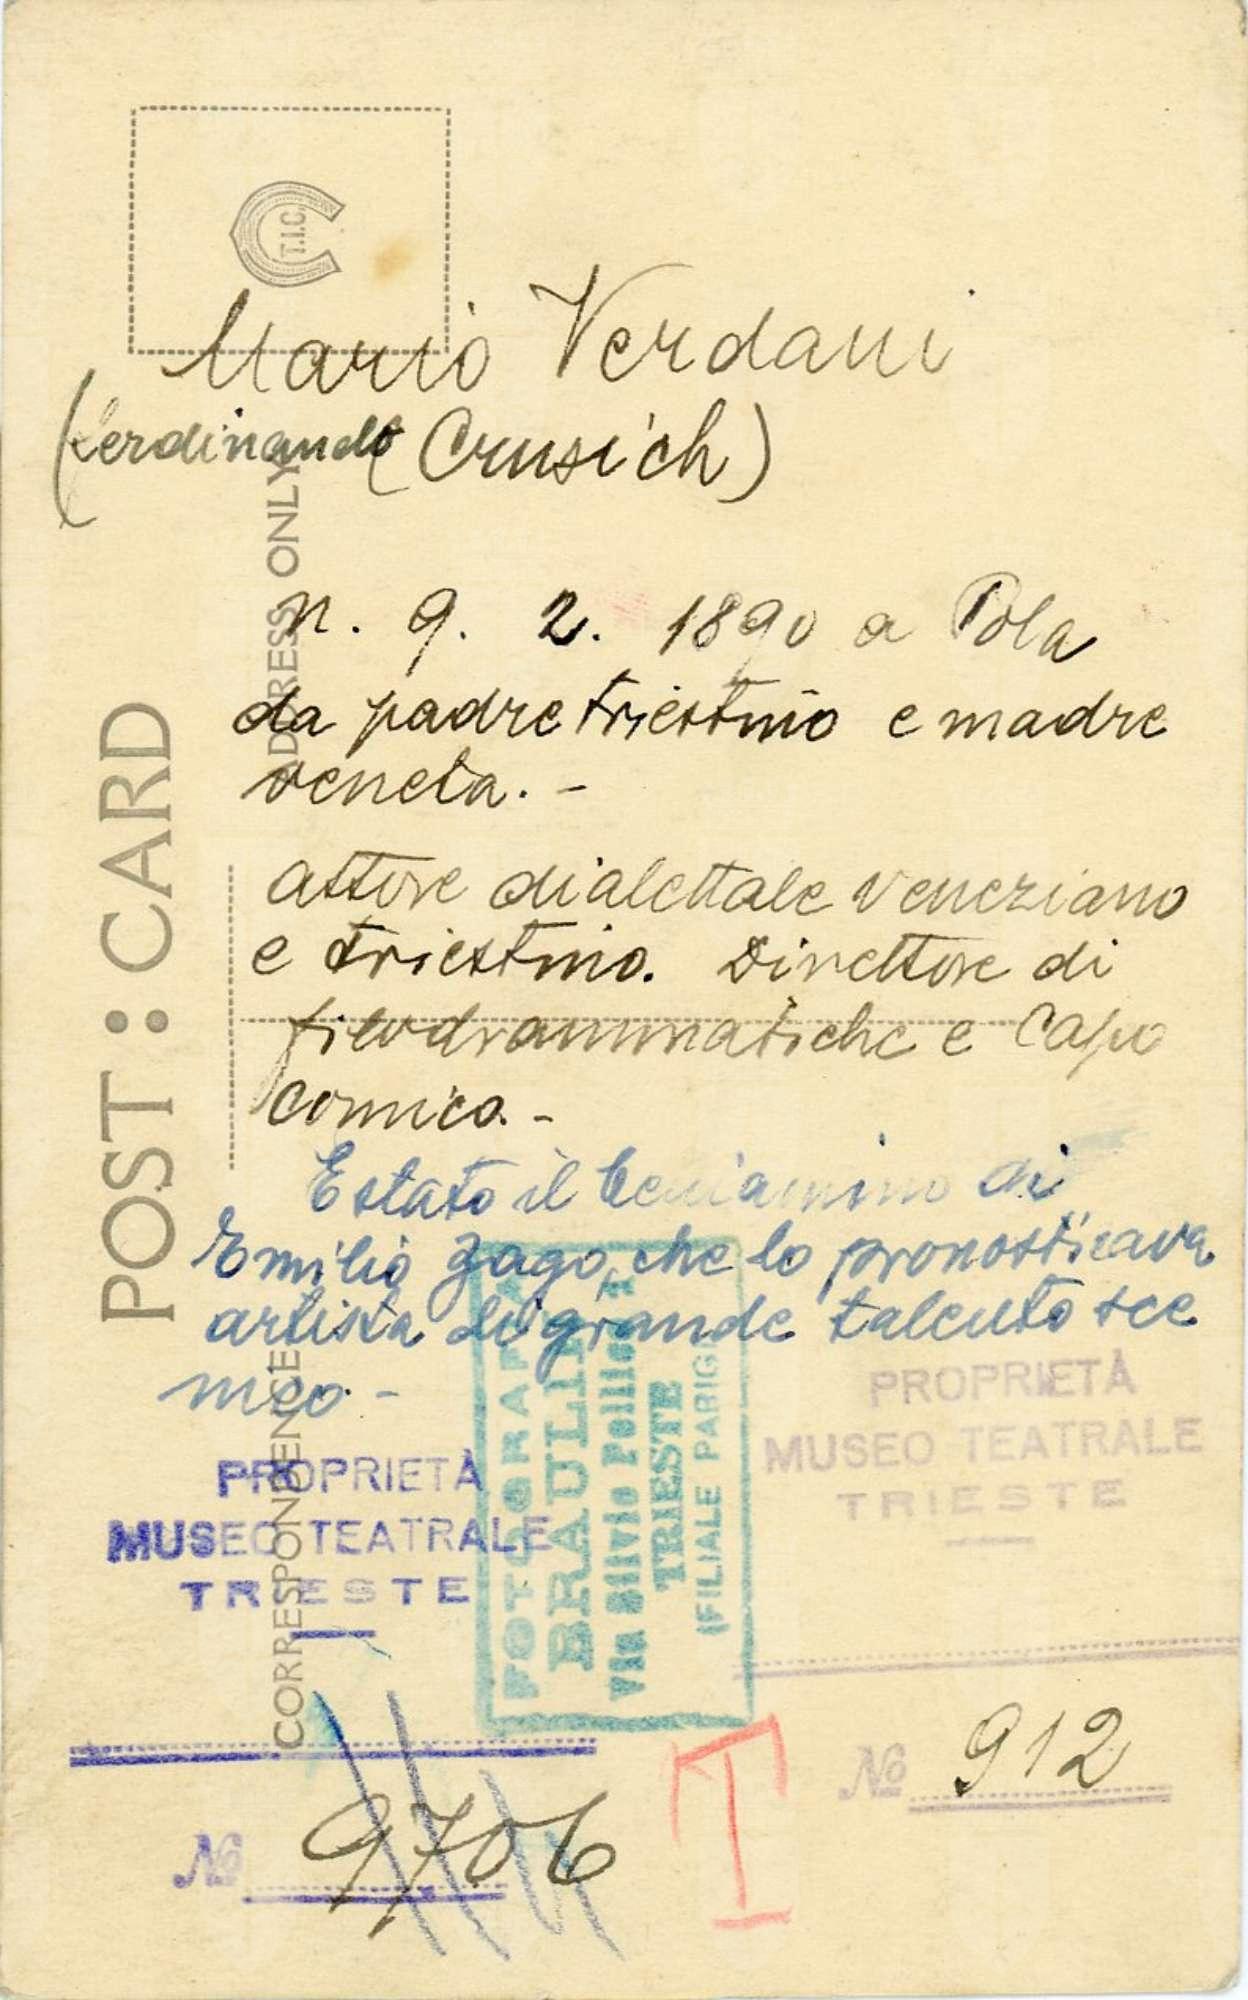 T.I.C.
Mario Verdani
(ferdinando (Crusich)
n. 9. 2. 1890 a Pola
da padre triestino e madre
veneta. -
attore dialettale veneziano
e triestino. Direttore di
filodrammatiche e Capo
comico. -
E stato il beniamino di
Emilio Zago, che lo pronosticava
artista di grande talento sce
nico. -
POST : CARD
ADDRESS ONLY
CORRESPONDENCE
FOTOGRAFIA
BRAULIN
Via Silvio Pellico
TRIESTE
(FILIALE PARIGI
PROPRIETÀ
MUSEO TEATRALE
TRIESTE
No 9706
PROPRIETÀ
MUSEO TEATRALE
TRIESTE
No 912
I